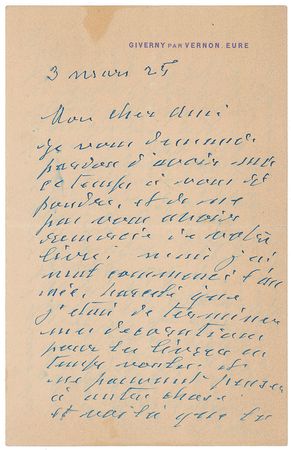 GIVERNY PAR VERNON. EURE
3 mars 25
Mon cher ami
Je vous demande
pardon d'avoir mis
ce temps à vous ré
pondre, et de ne
pas vous avoir
remercié de votre
livre; mais j'ai
vécu comme un
parce que
j'étais de terminer
ma décoration
pour la livrer en
temps voulu, et
ne pouvant penser
à autre chose
et voilà que la